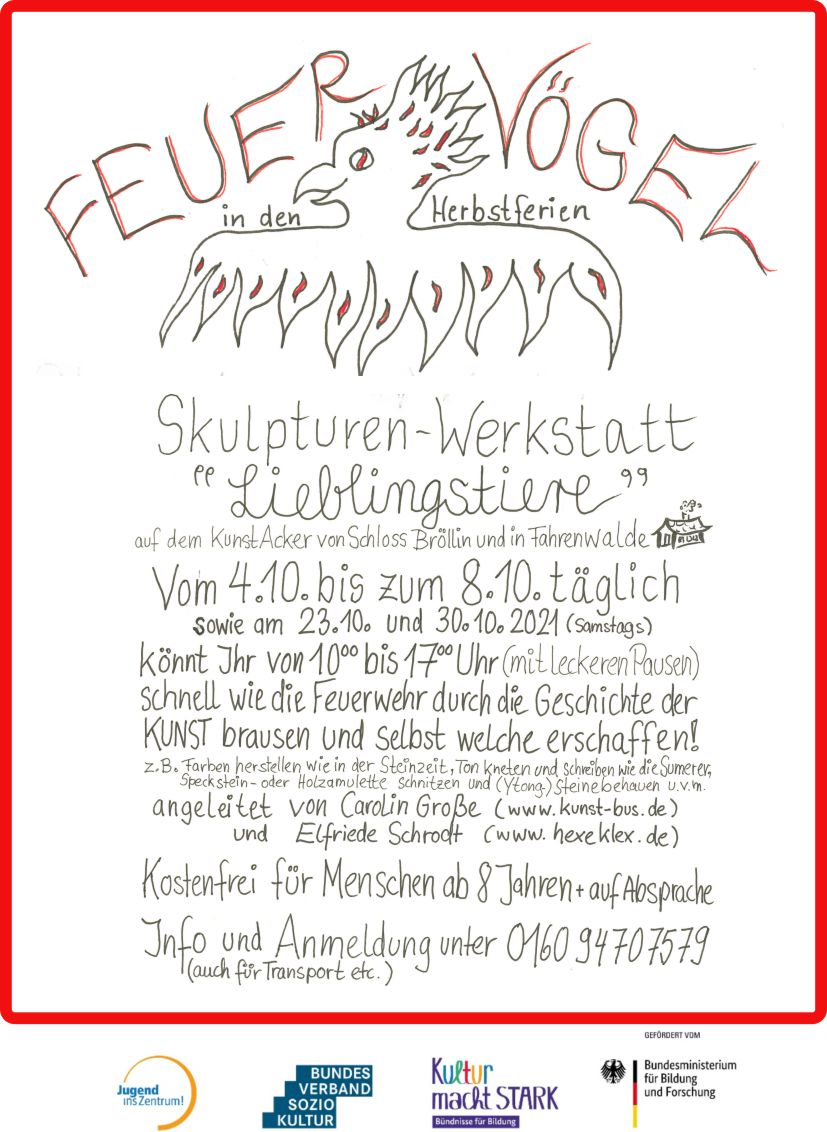 FEUER VÖGEL
in den Herbstferien
Skulpturen-Werkstatt
"Lieblingstiere"
auf dem KunstAcker von Schloss Bröllin und in Fahrenwalde
Vom 4.10. bis zum 8.10. täglich
sowie am 23.10. und 30.10.2021 (Samstags)
könnt Ihr von 10⁰⁰ bis 17⁰⁰ Uhr (mit leckeren Pausen)
schnell wie die Feuerwehr durch die Geschichte der
KUNST brausen und selbst welche erschaffen!
z.B. Farben herstellen wie in der Steinzeit, Ton kneten und schreiben wie die Sumerer,
Speckstein- oder Holzamulette schnitzen und (Ytong-) Steine behauen u.v.m.
angeleitet von Carolin Große (www.kunst-bus.de)
und Elfriede Schrodt (www.hexeklex.de)
Kostenfrei für Menschen ab 8 Jahren + auf Absprache
Info und Anmeldung unter 0160 94707579
(auch für Transport etc.)
GEFÖRDERT VOM
Jugend
ins Zentrum!
BUNDES
VERBAND
SOZIO
KULTUR
Kultur
macht STARK
Bündnisse für Bildung
Bundesministerium
für Bildung
und Forschung